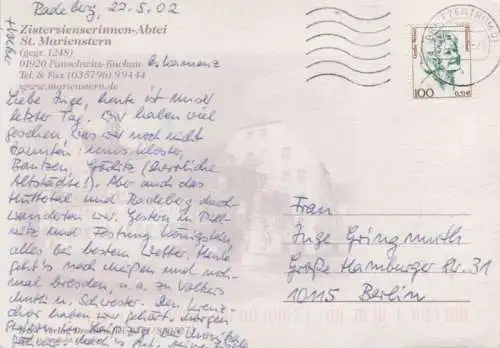 Radeberg, 22.5.02
Zisterzienserinnen-Abtei
St. Marienstern
(gegr. 1248)
01920 Panschwitz-Kuckau b. Kamenz
Tel. & Fax (035796) 99444
www.marienstern.de
Liebe Inge, heute ist unser
letzter Tag. Wir haben viel
gesehen, was wir noch nicht
kannten:
Bautzen, Görlitz (herrliche
Altstädte!). Aber auch das
Hüttetal und Radeberg durch
wanderten wir. Gestern in Pill-
nitz und Festung Königstein,
alles bei bestem Wetter. Heute
geht's nach Meißen und noch-
mal Dresden, u. a. zu Volkers
u. Schwester. Den Kreuz
chor haben wir gehört. Morgen
100
0,51 €
Frau
Inge Gringmuth
Große Hamburger Str. 31
10115 Berlin